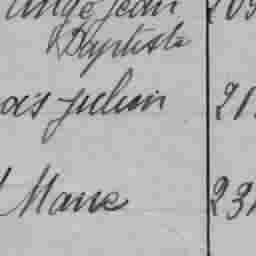 Ange Jean 209
Baptiste
as Julien 21
Marie 231